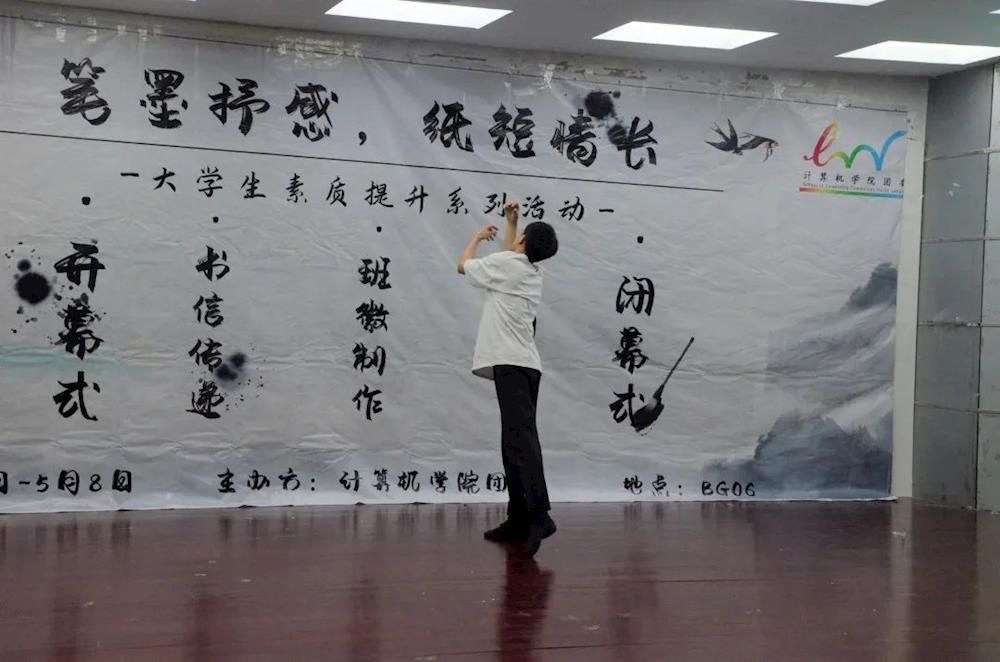 笔墨抒感，纸短情长
计算机学院团委
-大学生素质提升系列活动-
·开幕式
·书信传递
·班徽制作
·闭幕式
月~5月8日
主办方：计算机学院团
地点：BG06